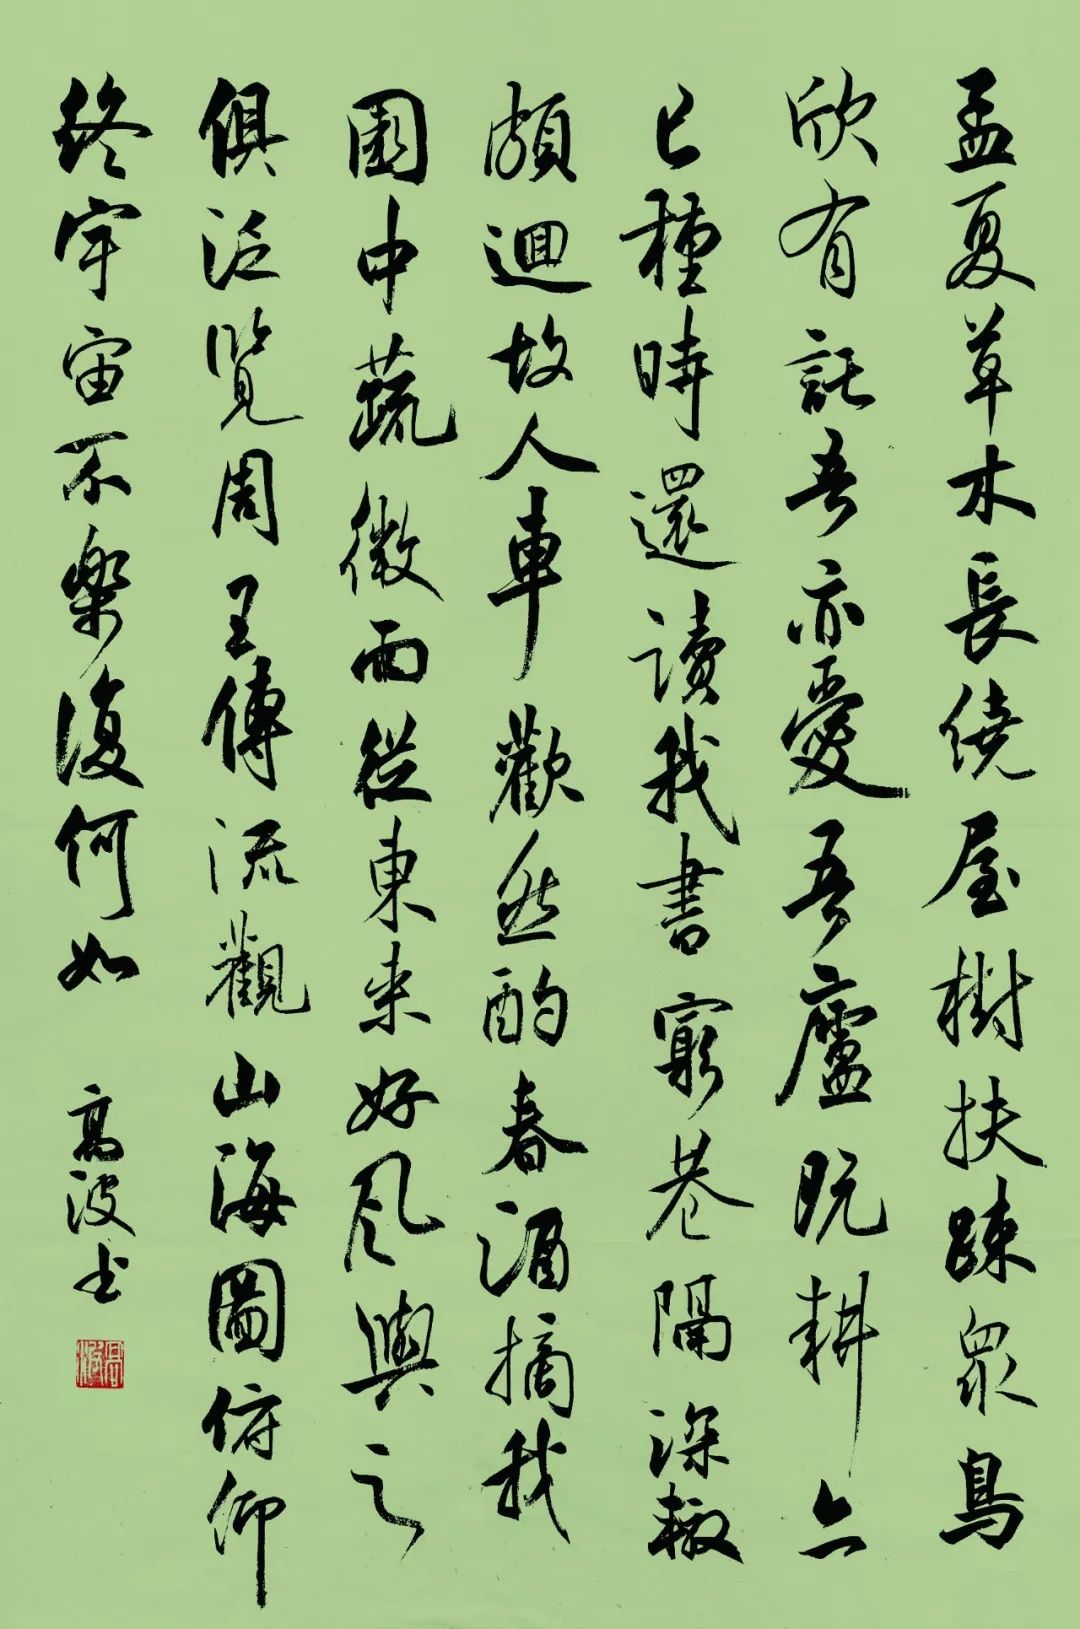 孟夏草木長繞屋樹扶踈眾鳥
欣有託吾亦愛吾廬既耕亦
已種時還讀我書窮巷隔深轍
頗迴故人車歡然酌春酒摘我
園中蔬微雨從東来好風與之
俱泛覽周王傳流觀山海圖俯仰
終宇宙不樂復何如
高波书
高波